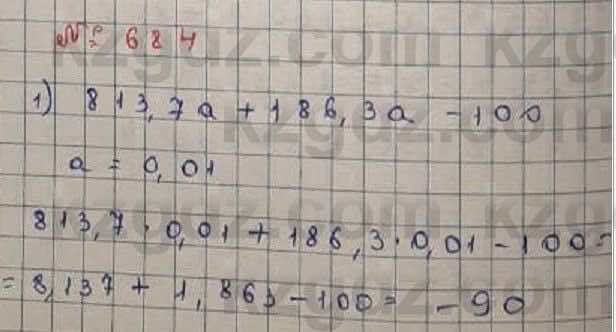 № 684
1) 813,7a + 186,3a - 100
a = 0,01
813,7 · 0,01 + 186,3 · 0,01 - 100 =
= 8,137 + 1,863 - 100 = - 90
kzguz.com kzguz.com